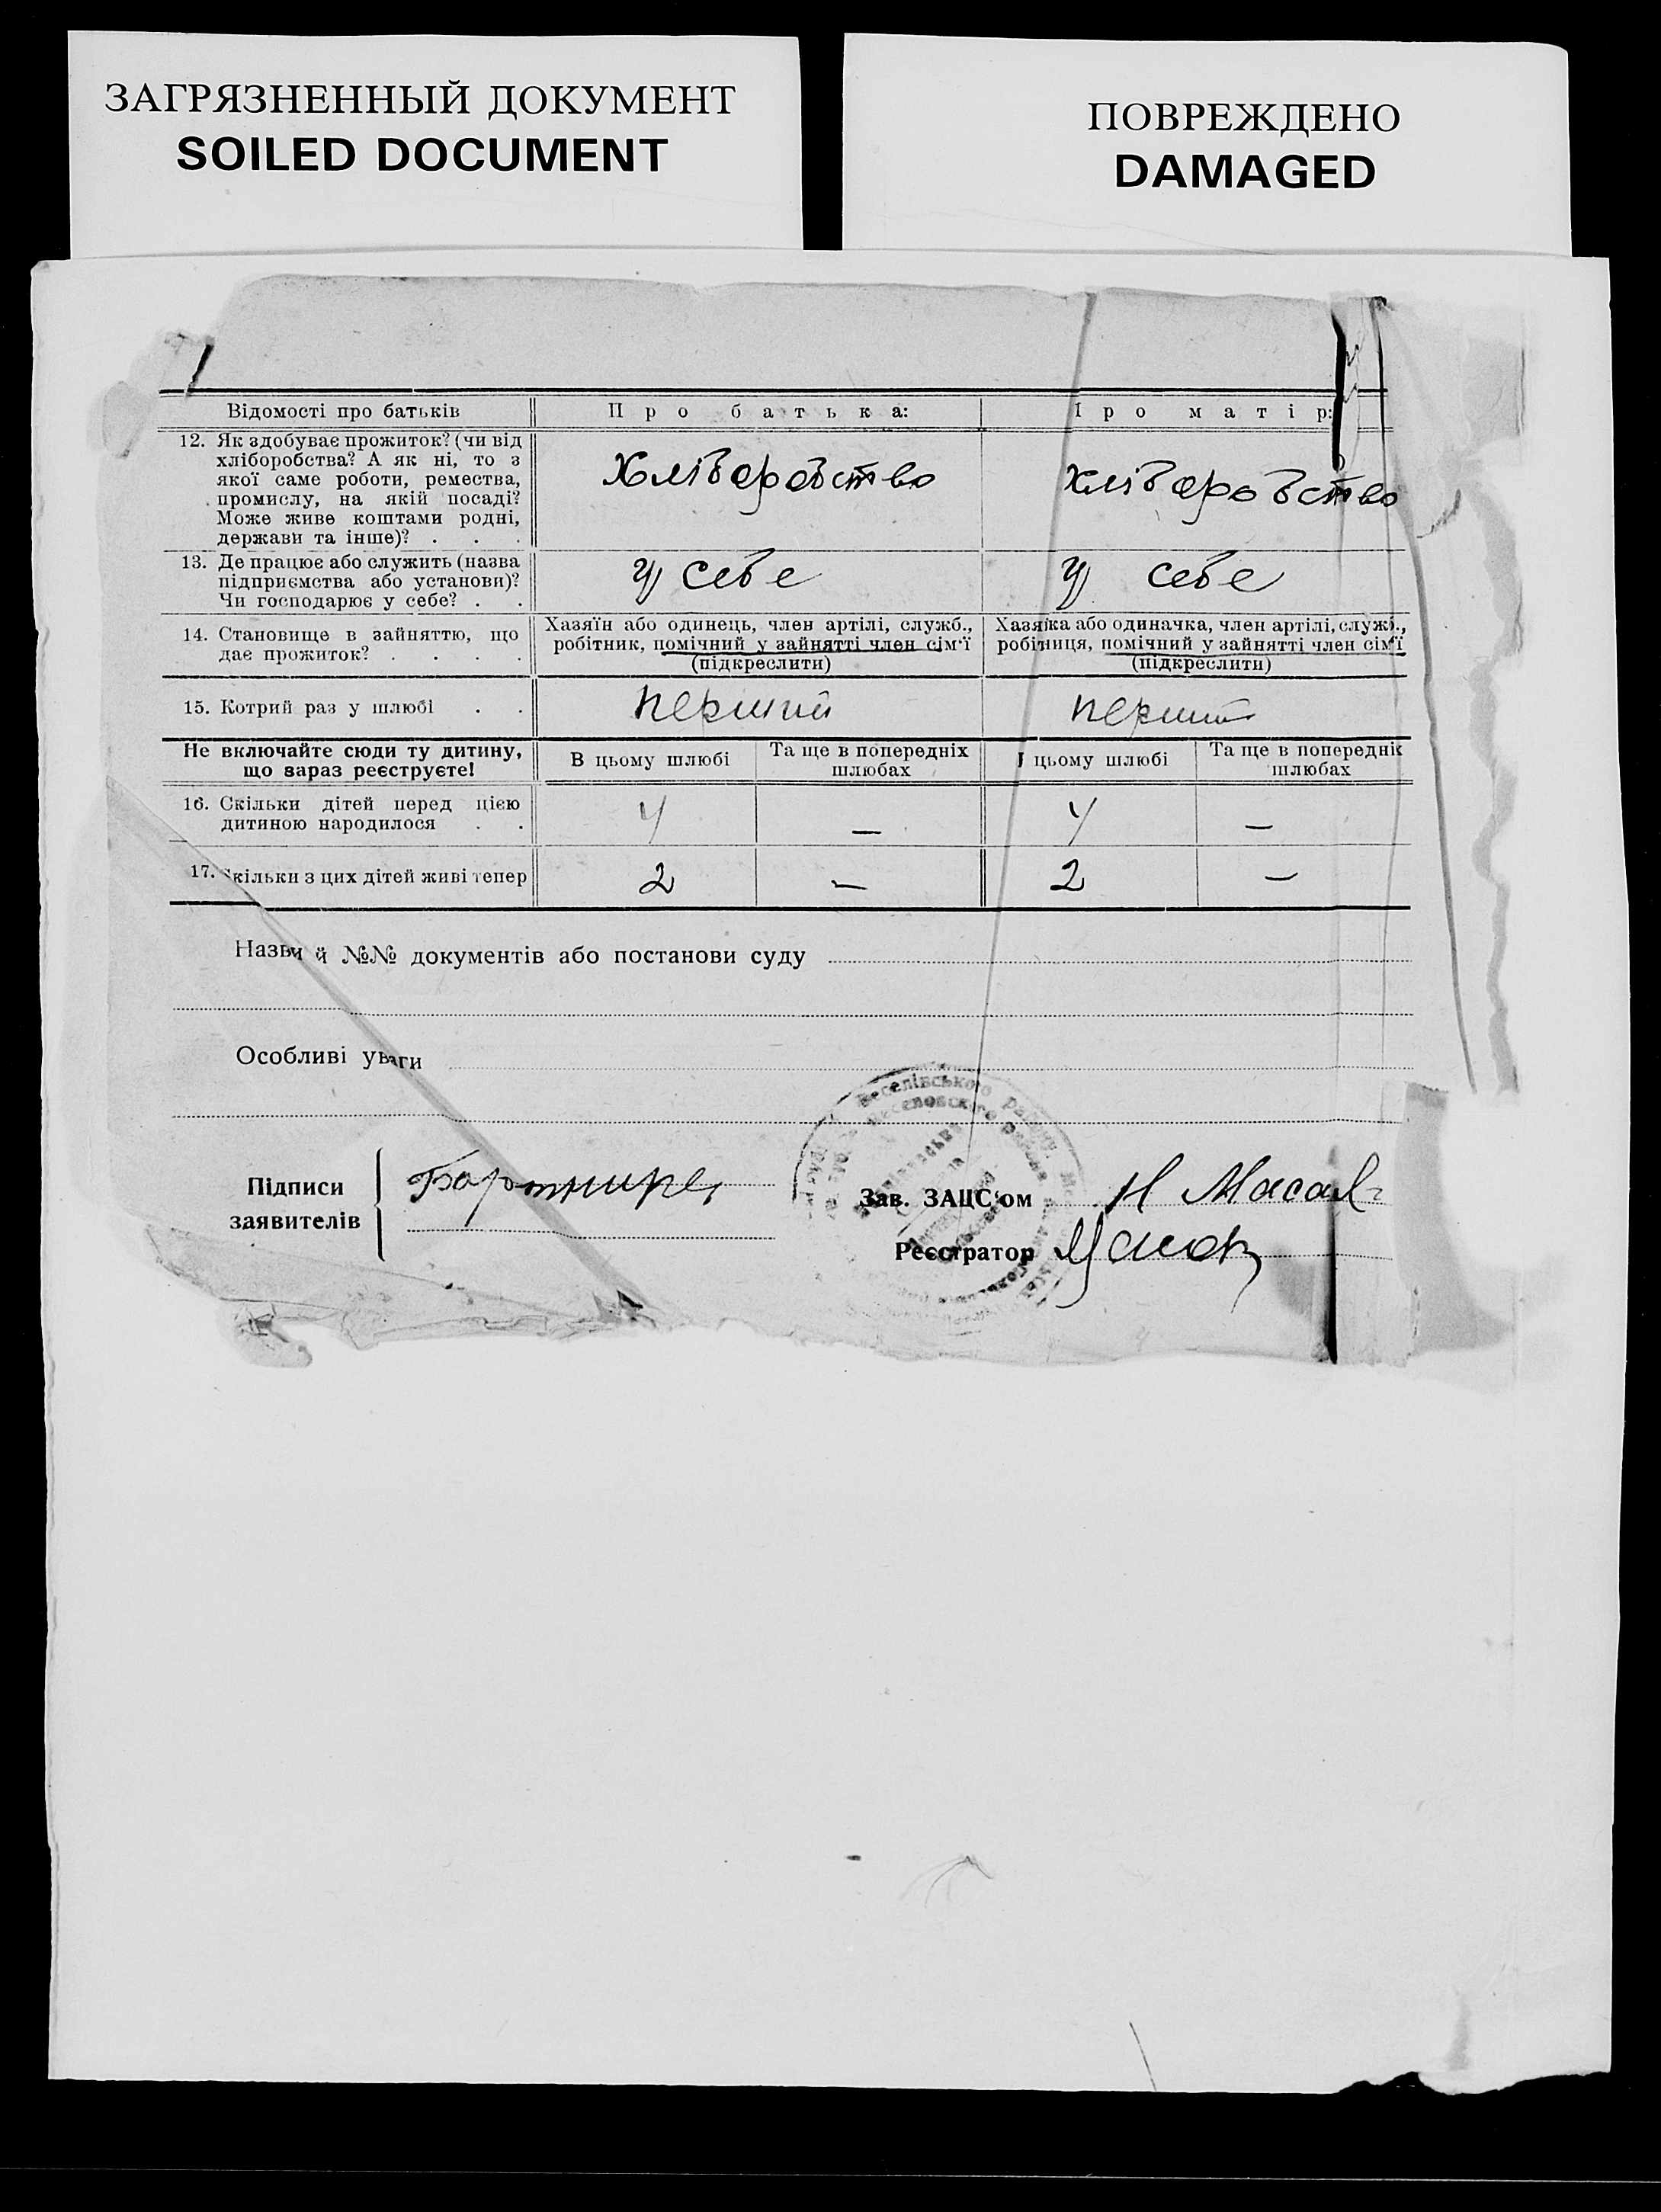 ЗАГРЯЗНЕННЫЙ ДОКУМЕНТ
SOILED DOCUMENT
ПОВРЕЖДЕНО
DAMAGED
Відомості про батьків
Про батька:
Про матір:
12. Як здобуває прожиток? (чи від
хліборобства? А як ні, то з
якої саме роботи, ремества,
промислу, на якій посаді?
Може живе коштами родні,
держави та інше)? . . .
Хліборобство
Хліборобство
13. Де працює або служить (назва
підприємства або установи)?
Чи господарює у себе? . .
у себе
у себе
14. Становище в зайняттю, що
дає прожиток? . . . .
Хазяїн або одинець, член артілі, служб.,
робітник, помічний у зайнятті член сім'ї
(підкреслити)
Хазяйка або одиначка, член артілі, служб.,
робітниця, помічний у зайнятті член сім'ї
(підкреслити)
15. Котрий раз у шлюбі . .
перший
перший
Не включайте сюди ту дитину,
що зараз реєструєте!
В цьому шлюбі
Та ще в попередніх
шлюбах
цьому шлюбі
Та ще в попередніх
шлюбах
16. Скільки дітей перед цією
дитиною народилося . .
4
—
4
—
17. Скільки з цих дітей живі тепер
2
—
2
—
Назви й №№ документів або постанови суду
Особливі уваги
Веселівського району
Підписи
заявителів
Зав. ЗАЦС'ом
Н Масал
Реєстратор